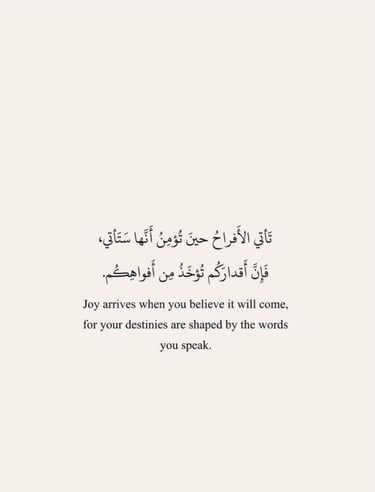 تَأتي الأَفراحُ حينَ تُؤمِنُ أَنَّها سَتَأتي،
فَإِنَّ أَقدارَكُم تُؤخَذُ مِن أَفواهِكُم.
Joy arrives when you believe it will come,
for your destinies are shaped by the words
you speak.